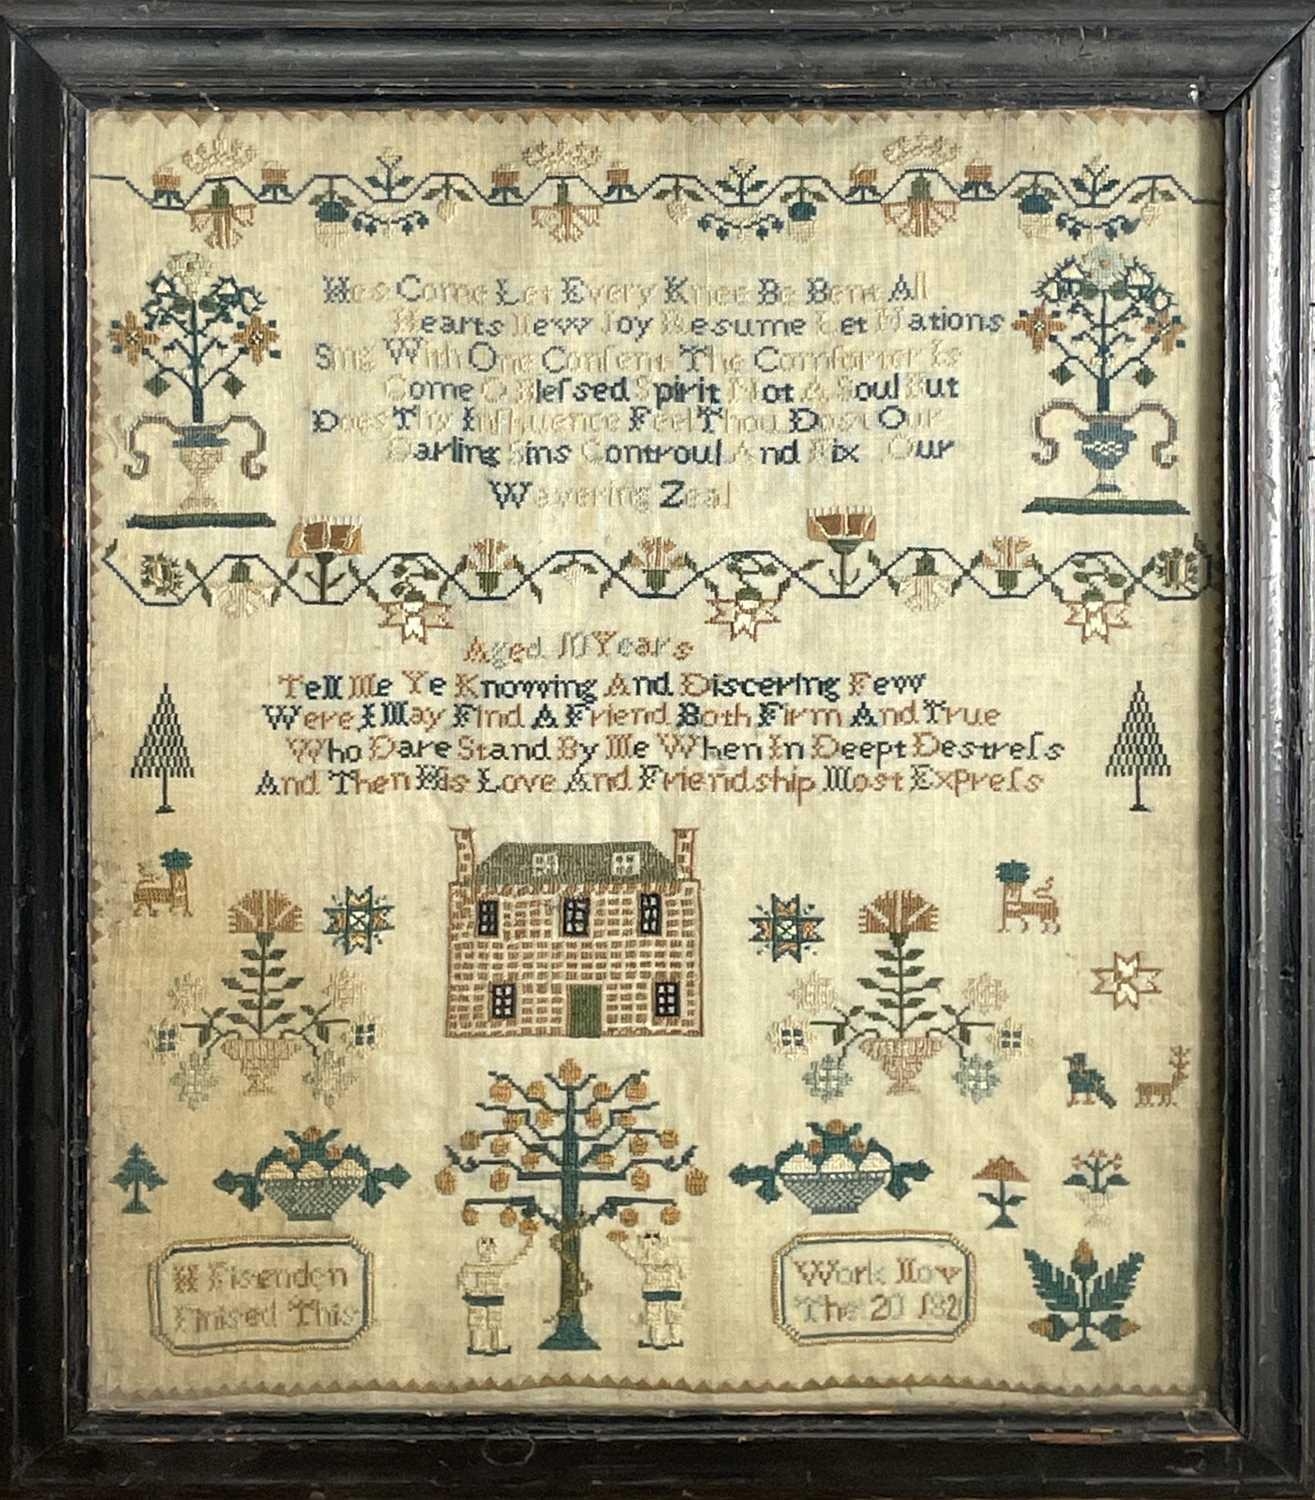 Hes Come Let Every Knee Be Bent All
Hearts New Joy Resume Let Nations
Sing With One Conſent The Comforter Is
Come O Bleſsed Spirit Not A Soul But
Does Thy Influence Feel Thou Dost Our
Darling Sins Controul And Fix Our
Wavering Zeal
Aged 10 Years
Tell Me Ye Knowing And Discering Few
Were I May Find A Friend Both Firm And True
Who Dare Stand By Me When In Deept Destreſs
And Then His Love And Friendship Most Expreſs
H Fisenden
Finised This
Work Nov
The 20 1821